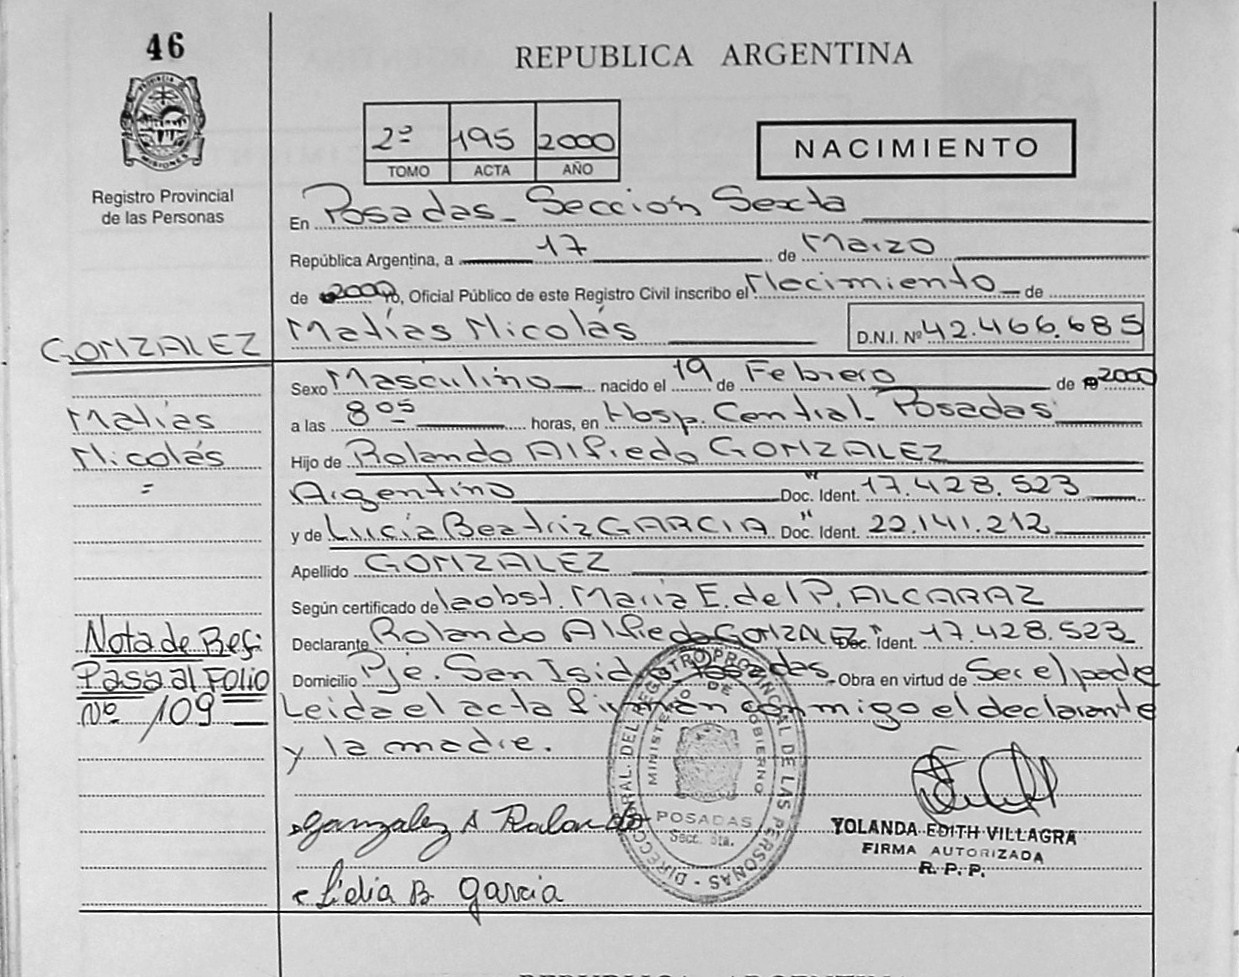 46
REPUBLICA ARGENTINA
2º 195 2000
TOMO ACTA AÑO
NACIMIENTO
MISIONES
Registro Provincial
de las Personas
En Posadas_ Sección Sexta
República Argentina, a 17 de Marzo
de 2000 yo, Oficial Público de este Registro Civil inscribo el Nacimiento _ de
GONZALEZ
Matías Nicolás D.N.I. Nº 42.466.685
Sexo Masculino nacido el 19 de Febrero de 2000
Matías
a las 8 05 horas, en Hosp. Central_ Posadas
Nicolás
Hijo de Rolando Alfredo GONZALEZ
=
Argentino Doc. Ident. 17.428.523
y de Lucía Beatriz GARCIA Doc. Ident. 22.141.212
Apellido GONZALEZ
Según certificado de la obst. María E. del P. ALCARAZ
Nota de Ref:
Declarante Rolando Alfredo GONZALEZ Doc. Ident. 17.428.523
Pasa al FOLIO
Domicilio Pje. San Isidro_ Posadas. Obra en virtud de Ser el padre
Nº 109
Leida el acta firman conmigo el declarante
y la madre.
DIRECC. GRAL. DEL REGISTRO PROVINCIAL DE LAS PERSONAS
MINISTERIO DE GOBIERNO
POSADAS
Secc. 6ta.
Gonzalez A Rolando
YOLANDA EDITH VILLAGRA
FIRMA AUTORIZADA
R. P. P.
Lidia B. Garcia
REPUBLICA ARGENTINA